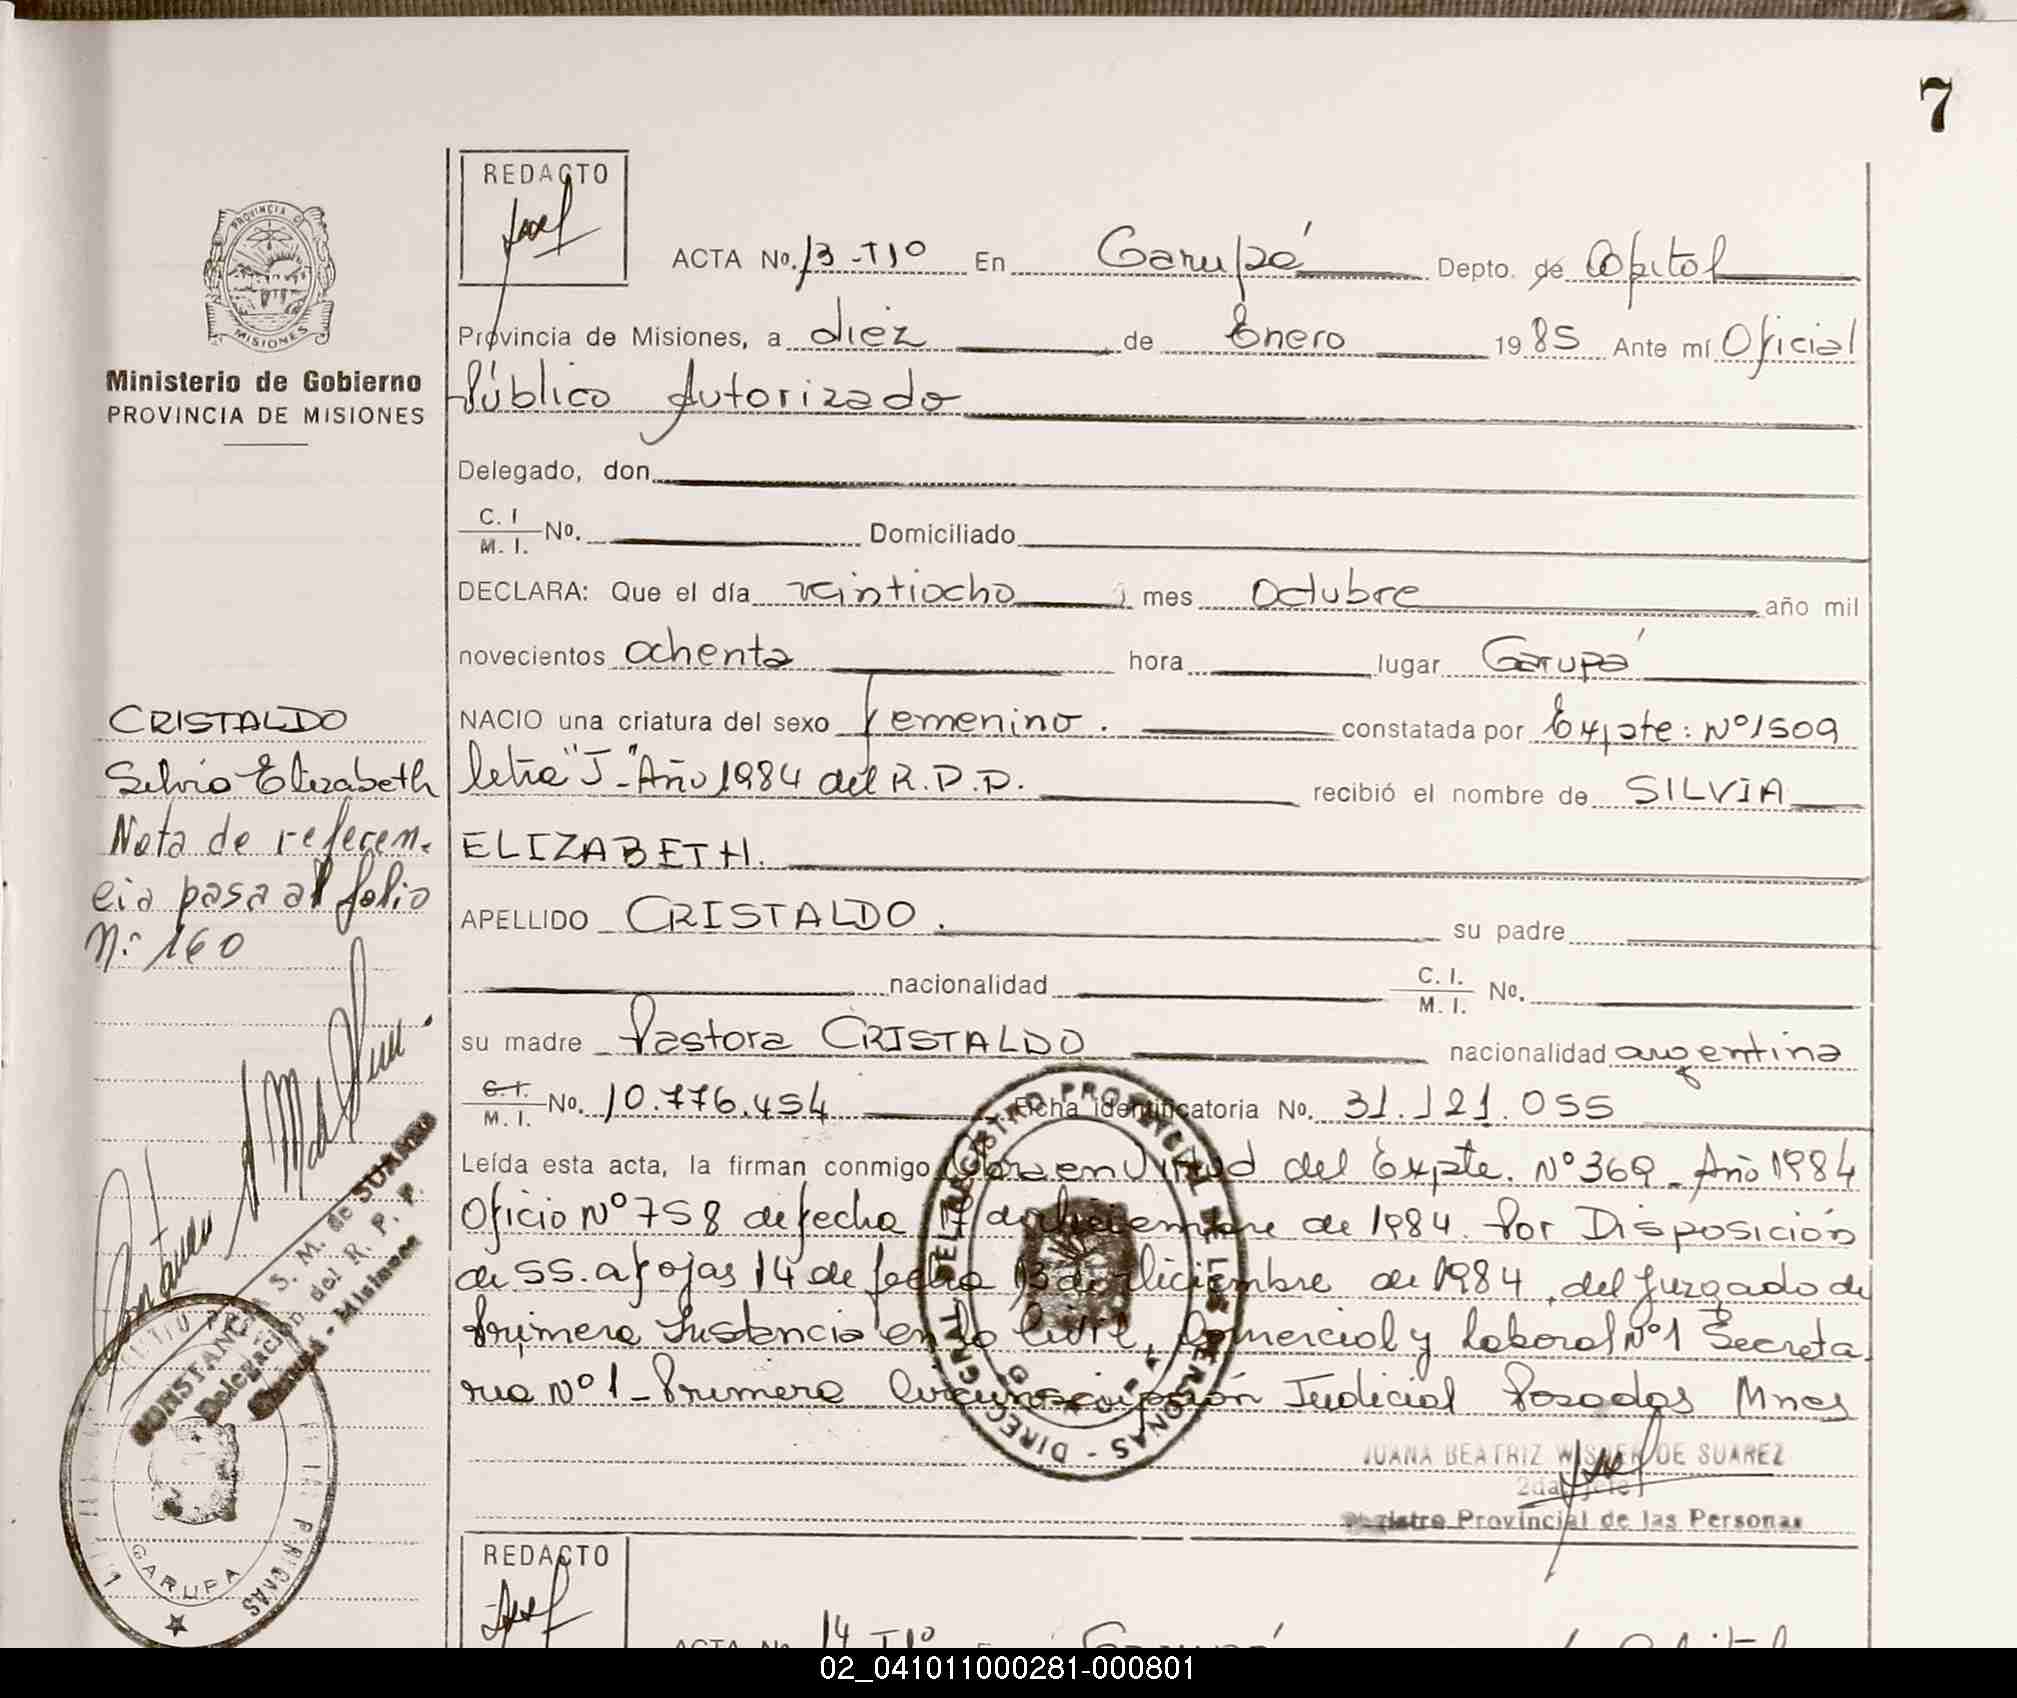 7
REDACTO
PROVINCIA DE
MISIONES
Ministerio de Gobierno
PROVINCIA DE MISIONES
ACTA No. 13 - T1º En Garupá Depto. de Capital
Provincia de Misiones, a diez de Enero 1985 Ante mí Oficial
Público Autorizado
Delegado, don
C. I
M. I. No. Domiciliado
DECLARA: Que el día veintiocho mes Octubre año mil
novecientos ochenta hora lugar Garupá
NACIO una criatura del sexo femenino. constatada por Expte: Nº 1509
letra "J" - Año 1984 del R.P.P. recibió el nombre de SILVIA
ELIZABETH.
APELLIDO CRISTALDO. su padre
nacionalidad C. I.
M. I. No.
su madre Pastora CRISTALDO nacionalidad argentina
C. I.
M. I. No. 10.776.454 Ficha identificatoria No. 31.121.055
Leída esta acta, la firman conmigo Labra en Virtud del Expte. Nº 369 - Año 1984
Oficio Nº 758 de fecha 17 de diciembre de 1984. Por Disposición
de SS. a fojas 14 de fecha 13 de diciembre de 1984, del Juzgado de
Primera Instancia en lo Civil, Comercial y Laboral Nº 1 Secreta
ria Nº 1 - Primera Circunscripción Judicial Posadas Mnes
JUANA BEATRIZ WISNER DE SUAREZ
2da. Jefe
Registro Provincial de las Personas
CRISTALDO
Silvia Elizabeth
Nota de referen-
cia pasa al folio
N: 160
CONSTANTINA S. M. de
Delegación del R. P. P.
Garupá - Misiones
GARUPA
DIRECC. GRAL. DEL REGISTRO PROVINCIAL DE LAS PERSONAS
REDACTO
ACTA No. 14 T1º En Garupá Capital
02_041011000281-000801